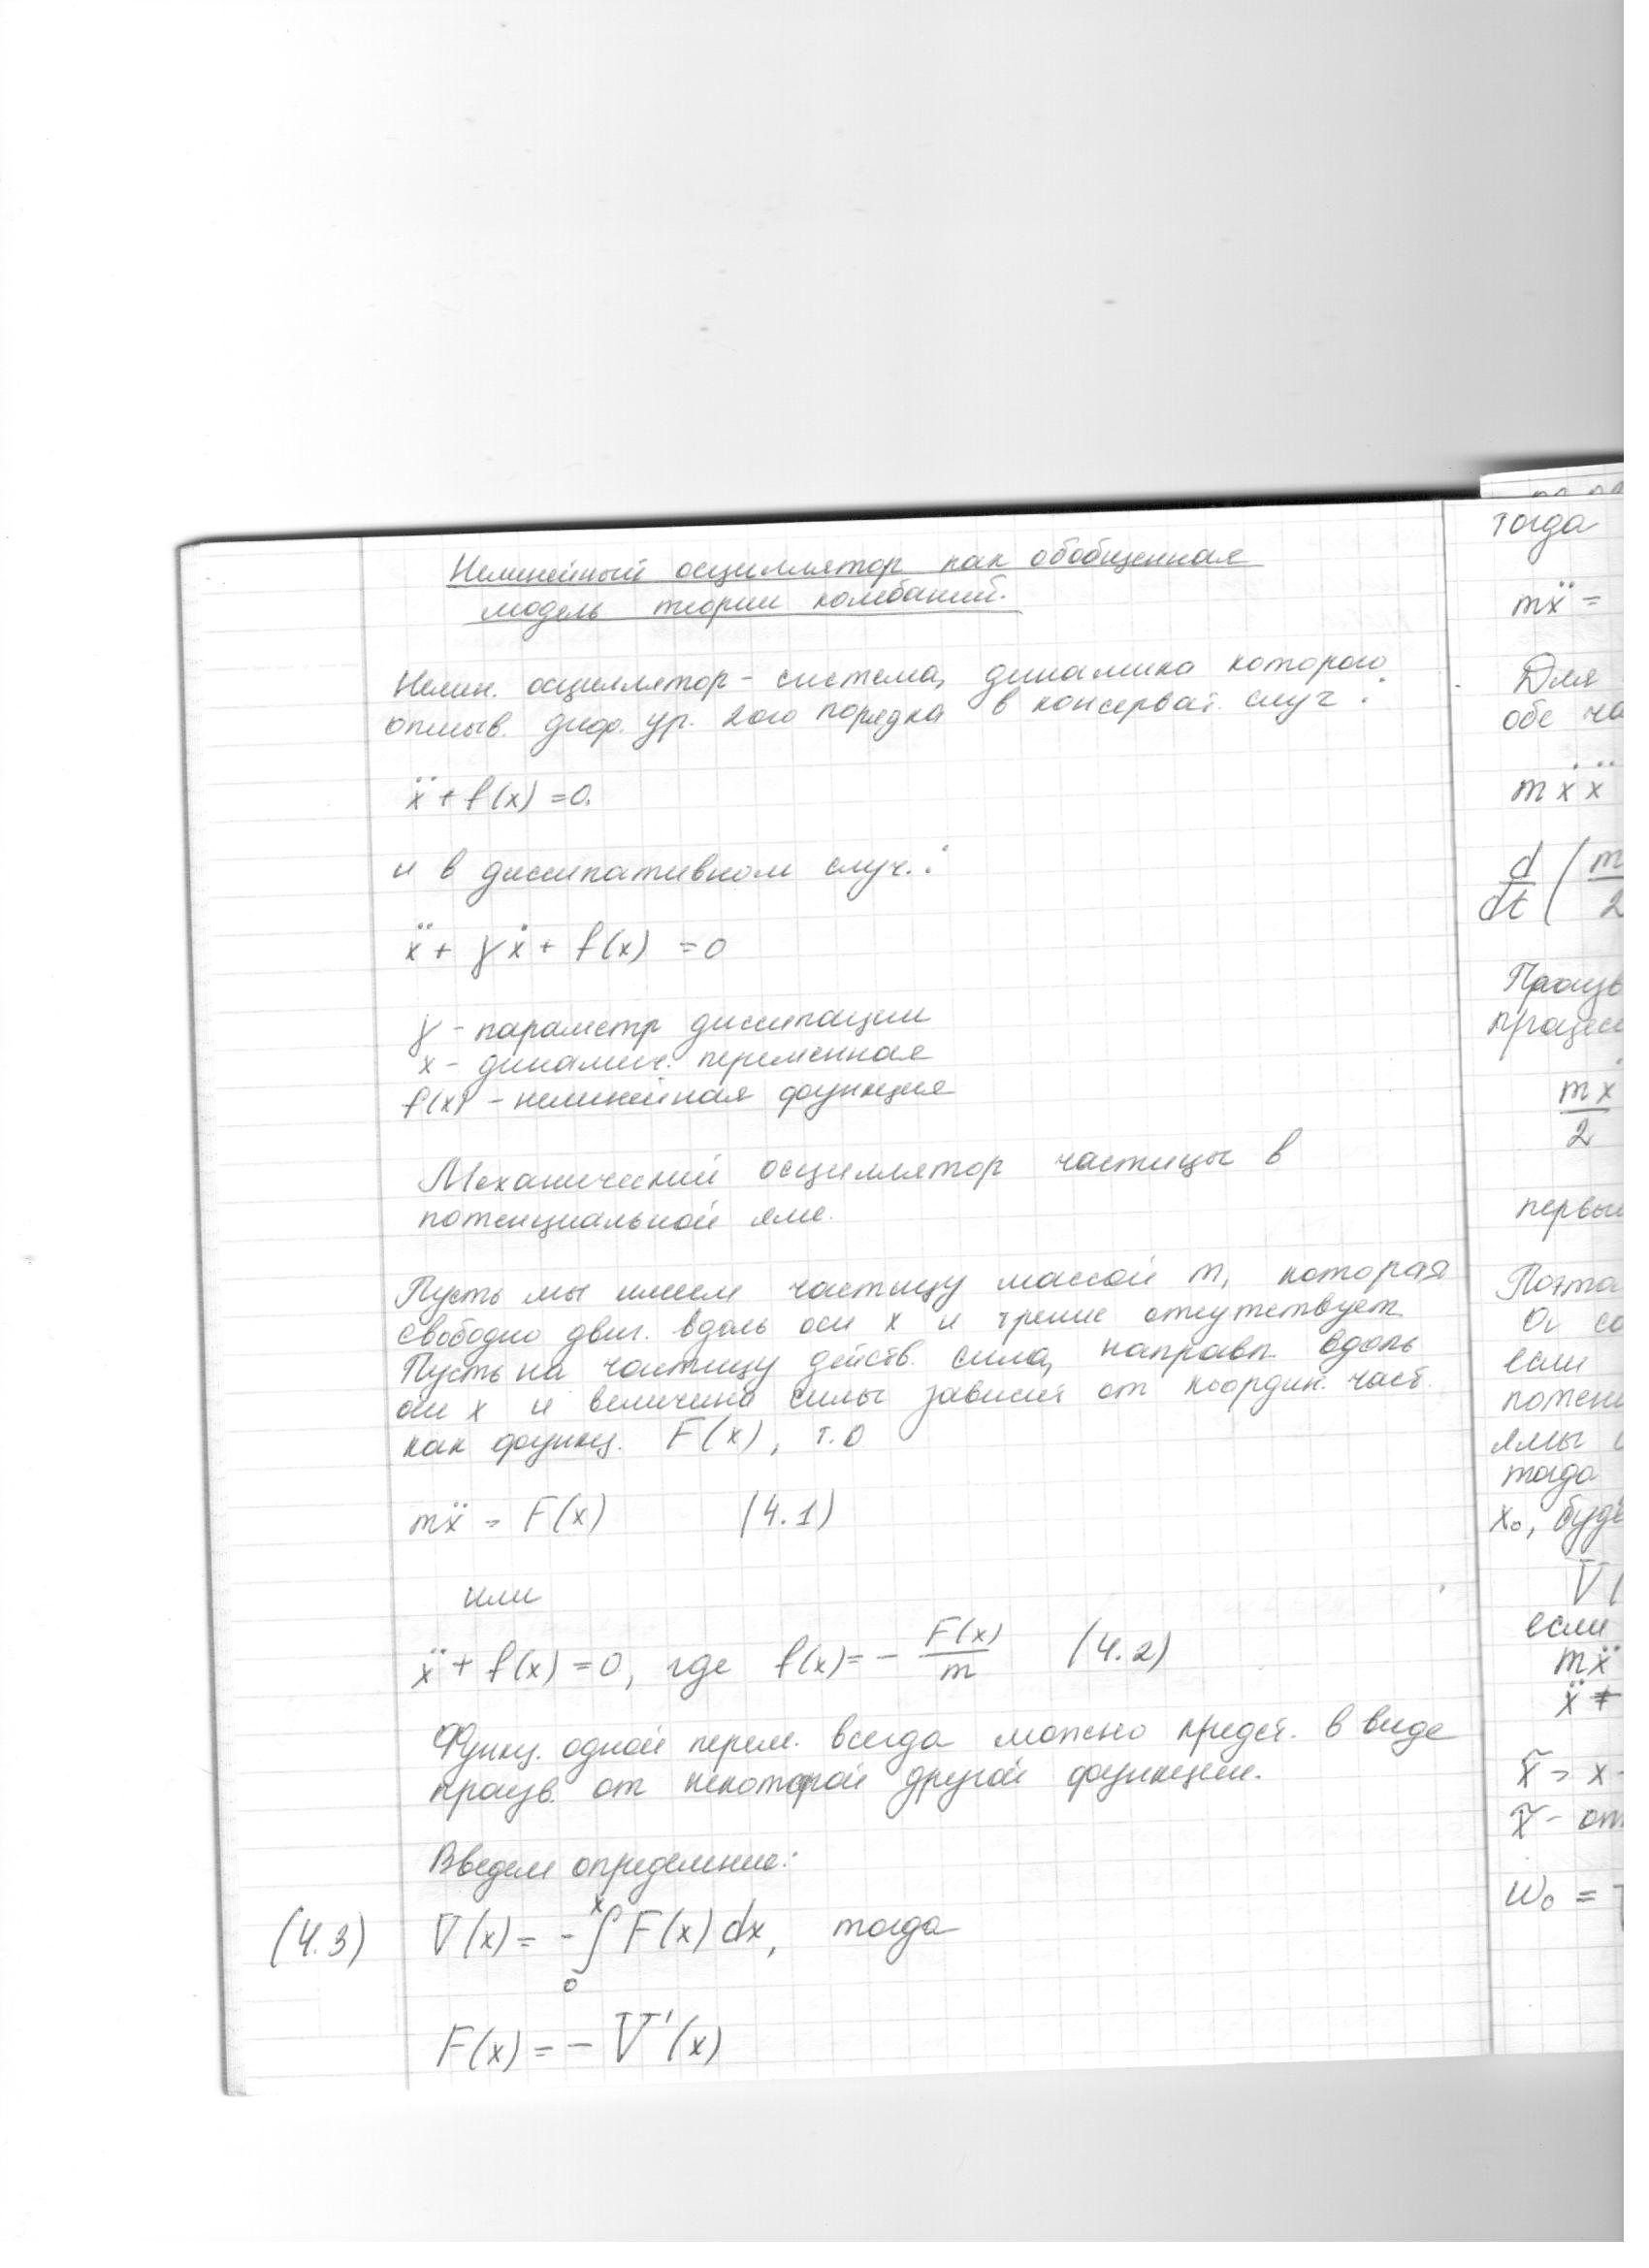 Нелинейный осциллятор как обобщенная
модель теории колебаний.
Нелин. осциллятор - система, динамика которого
описыв. диф. ур. 2ого порядка в консерват. случ.:
ẍ + f(x) = 0.
и в диссипативном случ.:
ẍ + γẋ + f(x) = 0
γ - параметр диссипации
x - динамич. переменная
f(x) - нелинейная функция
Механический осциллятор частицы в
потенциальной яме.
Пусть мы имеем частицу массой m, которая
свободно двиг. вдоль оси x и трение отсутствует
Пусть на частицу действ. сила, направл. вдоль
оси x и величина силы зависит от координ. част.
как функц. F(x), т.о
mẍ = F(x) (4.1)
или
ẍ + f(x) = 0, где f(x) = - F(x)/m (4.2)
Функц. одной перем. всегда можно предст. в виде
произв. от некоторой другой функции.
Введем определение:
(4.3) V(x) = - ∫₀ˣ F(x) dx, тогда
F(x) = - V'(x)
тогда
mẍ =
Для
обе ча
mẋẍ
d/dt ( m/2
Произв
процесс
mẋ/2
первый
Поэта
От со
если
потенц
ямы
тогда
x₀, буде
V(
если
mẍ
ẍ +
x̃ = x -
x̃ - от
ω₀ =